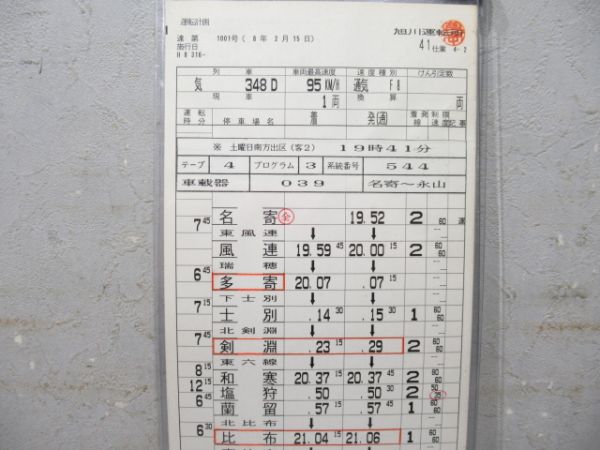 運転計画
達第 1001号( 8年 2月15日)
施行日
H8 316-
旭川運転所
41仕業 4-2
列車 車両最高速度 速度種別 けん引定数
気 348D 95KM/H 通気 F8
現車 1両 換算 両
運転時分 停車場名 着 発(通) 着発線 制限速度 記事
※ 土曜日南方出区(客2) 19時41分
テープ 4 プログラム 3 系統番号 544
車載器 039 名寄～永山
名寄 全 19.52 2 60 運
7 45
東風連 ↓ ↓
風連 19.59 45 20.00 15 2 60 60
瑞穂 ↓ ↓
6 45
多寄 20.07 .07 15
下士別 ↓ ↓
7 15
士別 .14 30 .15 30 1 60 60
北剣淵 ↓ ↓
7 45
剣淵 .23 15 .29 2 60 60
東六線 ↓ ↓
8 15
和寒 20.37 15 20.37 45 2 60 60
12 15
塩狩 .50 .50 30 2 50 35
6 45
蘭留 .57 .57 15 1 60 60
北比布 ↓ ↓
6 30
比布 21.04 15 21.06 1 60 60